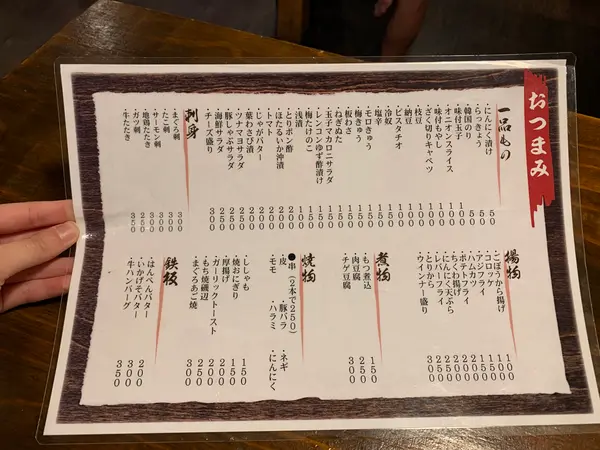 おつまみ
一品もの
・にんにく漬け 50
・らっきょう 50
・韓国のり 50
・味付玉子
・オニオンスライス
・味付もやし
・ざく切りキャベツ
・枝豆
・納豆
・ピスタチオ
・冷奴
・塩辛
・モロきゅう
・梅きゅう
・板わさ
・ねぎぬた
・玉子マカロニサラダ
・レンコンゆず酢漬け
・梅たけのこ
・浅漬
・とりポン酢
・ほたるいか沖漬
・トマト
・じゃがバター
・葉わさび漬
・ツナマヨサラダ
・豚しゃぶサラダ
・海鮮サラダ
・チーズ盛り 300
刺身
・まぐろ刺 300
・たこ刺 300
・サーモン刺 300
・地鶏たたき
・ガツ刺
・牛たたき 350
揚物
・ごぼうから揚げ 100
・コロッケ 100
・アジフライ
・ハムカツ
・ポテトフライ
・ちくわ揚げ
・にんにく天ぷら
・レバーフライ
・とりから
・ウインナー盛り
煮物
・もつ煮込 150
・肉豆腐
・チゲ豆腐 300
焼物
●串(2本で250)
・皮 ・豚バラ ・ネギ
・モモ ・ハラミ ・にんにく
・ししゃも 150
・焼おにぎり 150
・厚揚げ 200
・ガーリックトースト 200
・もち焼磯辺
・まぐろあご焼
鉄板
・はんぺんバター 200
・いかげそバター 300
・牛ハンバーグ 350